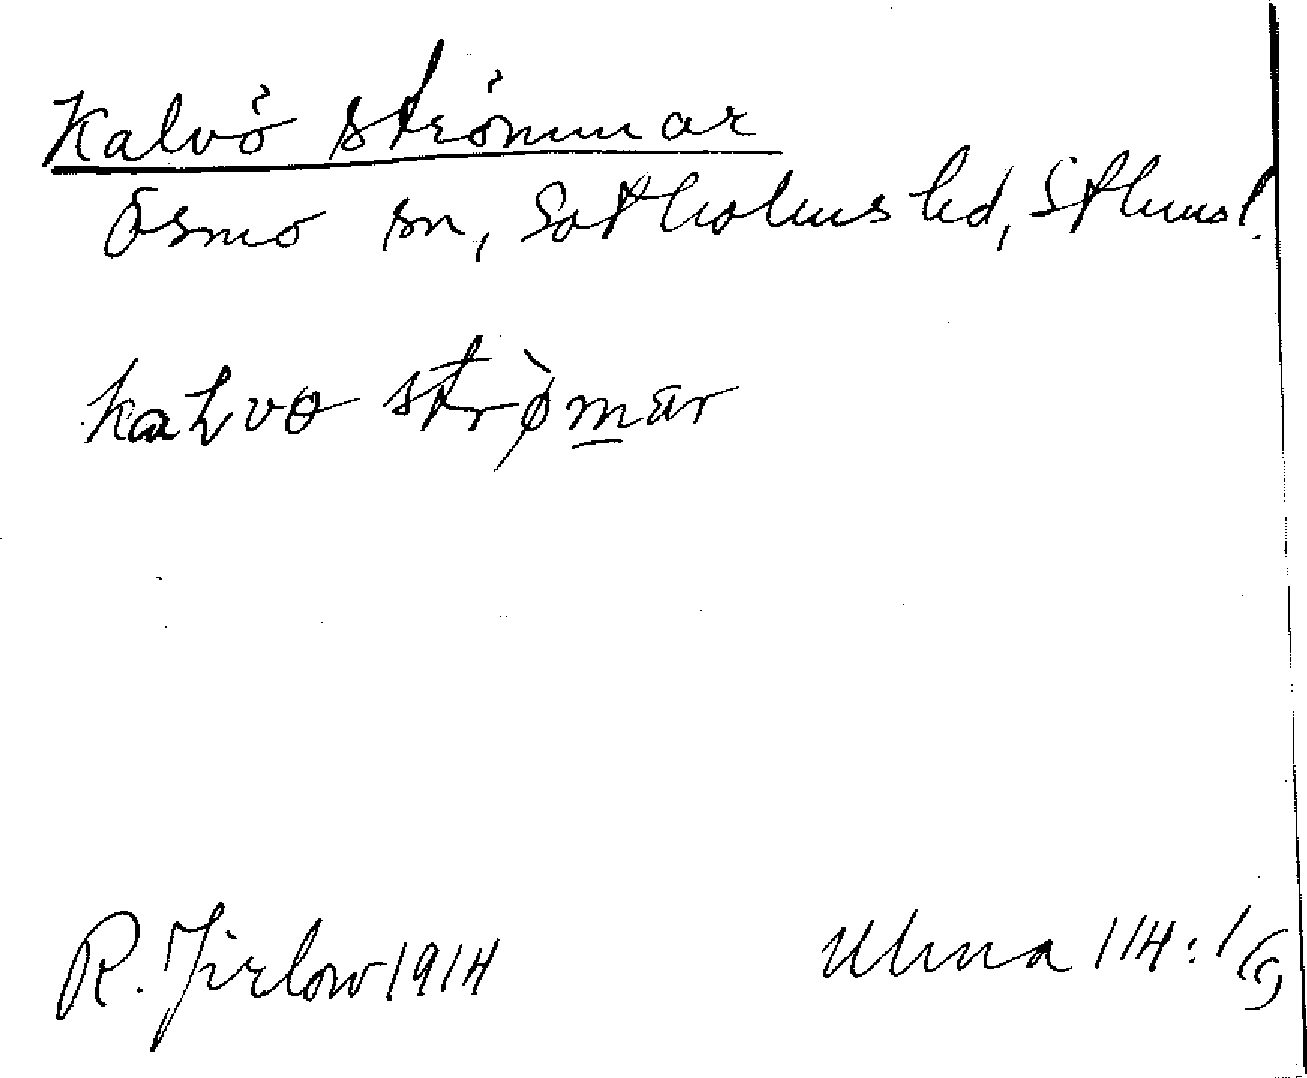 Kalvö strömmar
Ösmo sn, Sotholms hd, Sthms l.
kaLvo strø̀mar
R. Jirlow 1914
Ulma 114:1